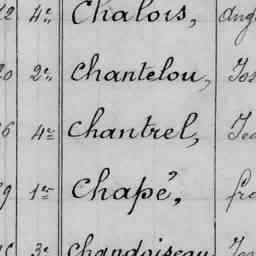 12 4e Chalois, Ang
20 2e Chantelou, Jos
6 4e Chantrel, Jea
9 1er Chapé, fra
3e Chandoiseau